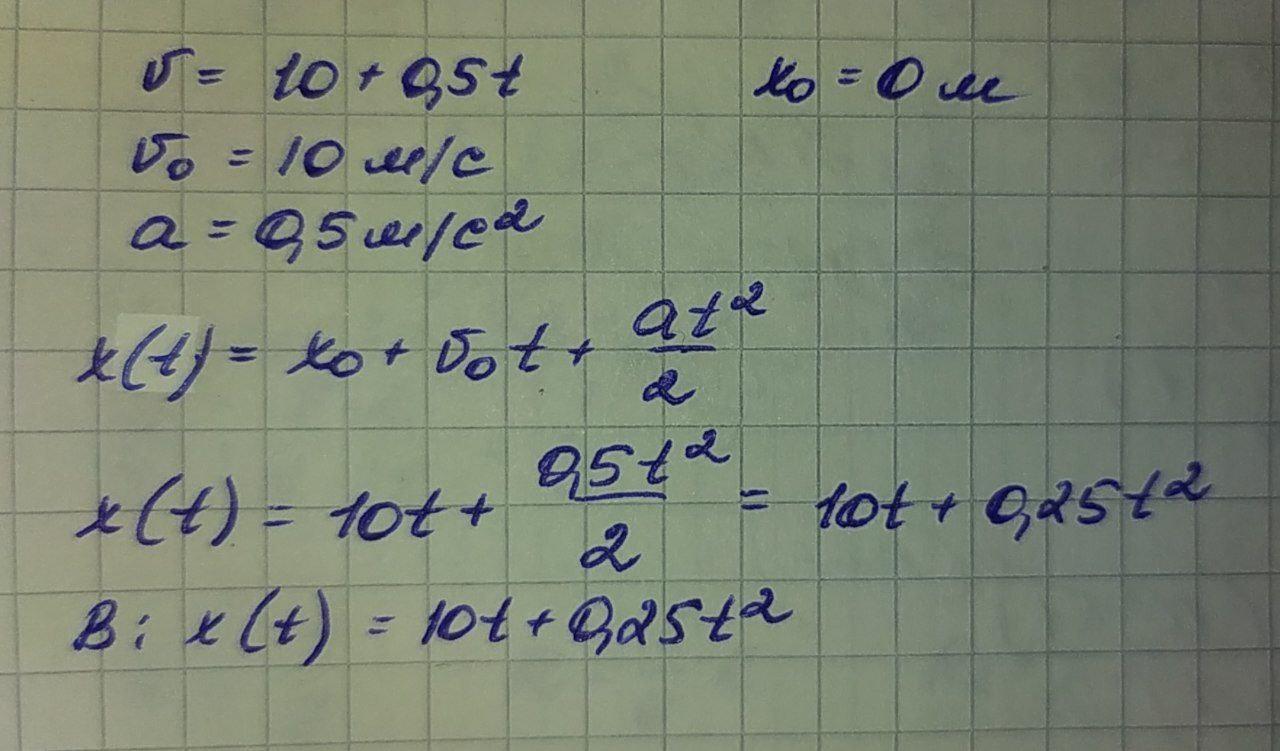 v = 10 + 0,5t x₀ = 0 м
v₀ = 10 м/с
a = 0,5 м/с²
x(t) = x₀ + v₀t + at²/2
x(t) = 10t + 0,5t²/2 = 10t + 0,25t²
В: x(t) = 10t + 0,25t²